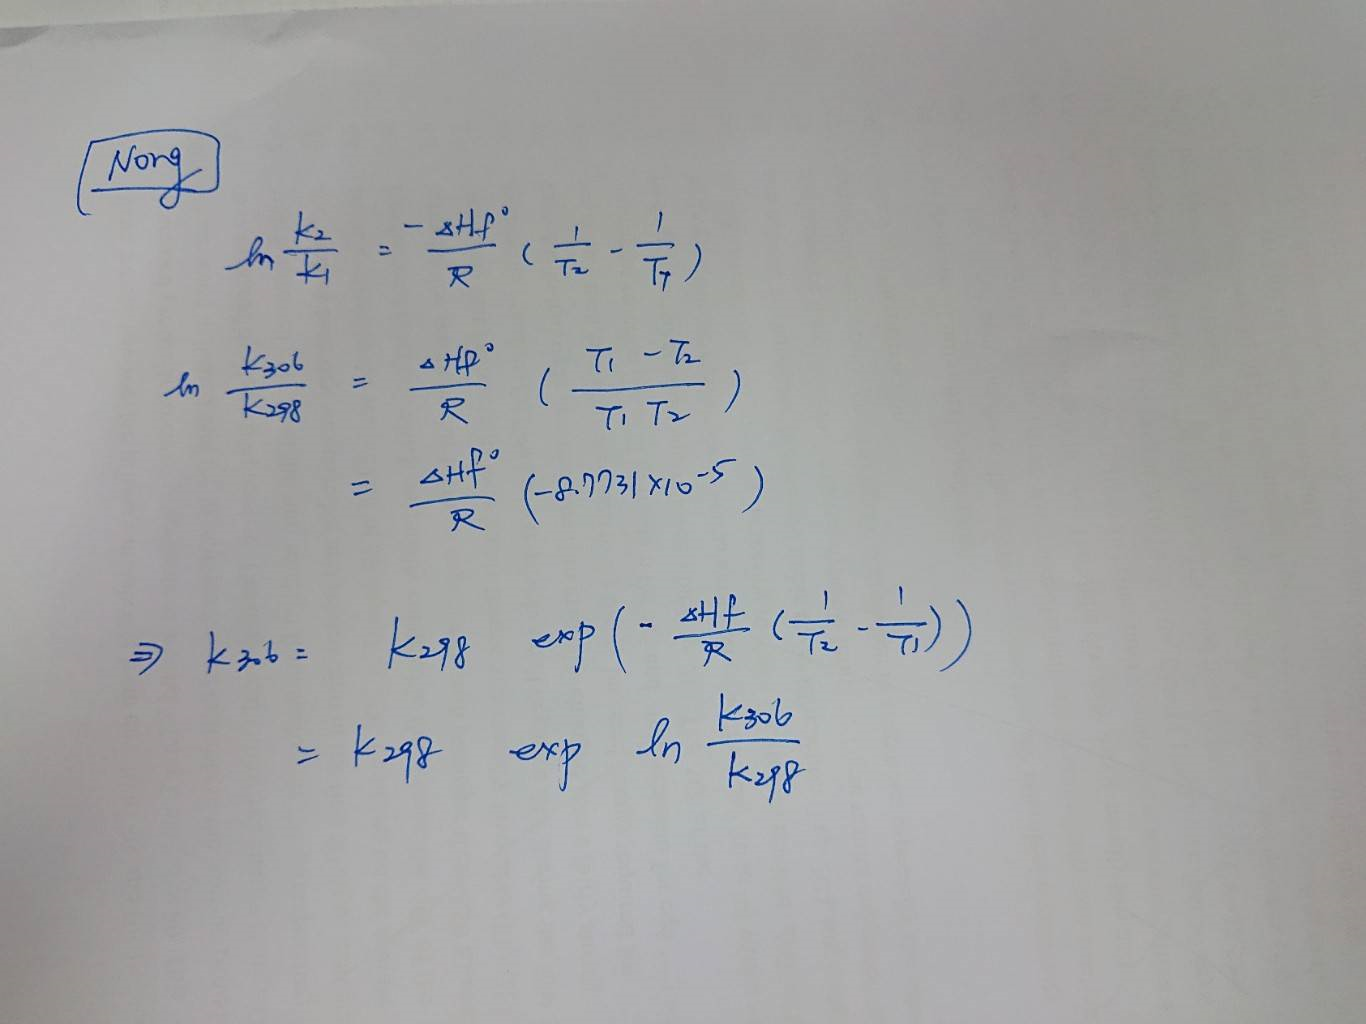 Nong
ln K2/K1 = -ΔHf°/R (1/T2 - 1/T1)
ln K306/K298 = ΔHf°/R (T1 - T2 / T1 T2)
= ΔHf°/R (-8.7731×10^-5)
⇒ K306 = K298 exp(- ΔHf/R (1/T2 - 1/T1))
= K298 exp ln K306/K298